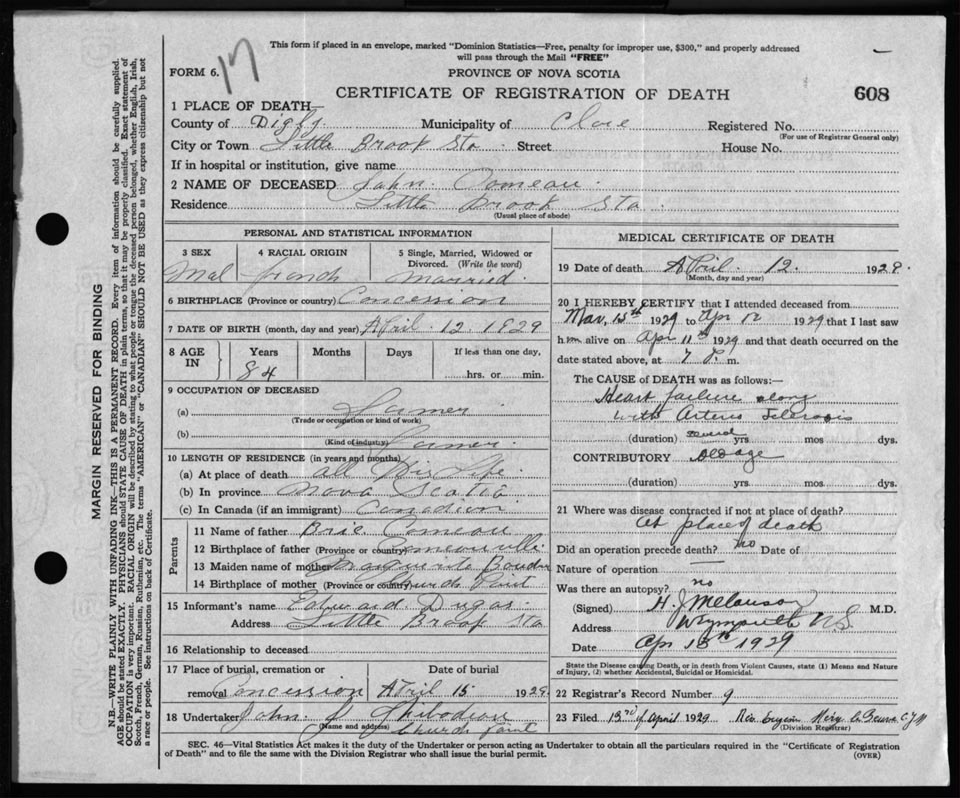 17
This form if placed in an envelope, marked "Dominion Statistics—Free, penalty for improper use, $300," and properly addressed
will pass through the Mail "FREE"
FORM 6.
PROVINCE OF NOVA SCOTIA
CERTIFICATE OF REGISTRATION OF DEATH
608
1 PLACE OF DEATH—
County of Digby Municipality of Clare Registered No.
(For use of Registrar General only)
City or Town Little Brook Sta. Street House No.
If in hospital or institution, give name
2 NAME OF DECEASED John Comeau
Residence Little Brook Sta.
(Usual place of abode)
PERSONAL AND STATISTICAL INFORMATION
3 SEX 4 RACIAL ORIGIN 5 Single, Married, Widowed or
Divorced. (Write the word)
Mal french married
6 BIRTHPLACE (Province or country) Concession
7 DATE OF BIRTH (month, day and year) April. 12. 1829
8 AGE IN Years Months Days If less than one day,
84 hrs. or min.
9 OCCUPATION OF DECEASED
(a) Farmer
(Trade or occupation or kind of work)
(b) Farmer.
(Kind of industry)
10 LENGTH OF RESIDENCE (in years and months)
(a) At place of death all His Life
(b) In province Nova Scotia
(c) In Canada (if an immigrant) Canadien
Parents
11 Name of father Comeau
12 Birthplace of father (Province or country) Comeauville
13 Maiden name of mother
14 Birthplace of mother (Province or country) Church Point
15 Informant's name Edward Dugas
Address Little Brook Sta
16 Relationship to deceased
17 Place of burial, cremation or Date of burial
removal Concession April 15 1929.
18 Undertaker John J Thibodeau
(Name and address) Church Point
MEDICAL CERTIFICATE OF DEATH
19 Date of death April. 12. 1929.
(Month, day and year)
20 I HEREBY CERTIFY that I attended deceased from
Mar, 15th 1929 to Apr 12 1929 that I last saw
him alive on Apr 11th 1929 and that death occurred on the
date stated above, at 7 P. m.
The CAUSE of DEATH was as follows:—
Heart failure along
with Arterio Sclerosis
(duration) several yrs. mos dys.
CONTRIBUTORY Old age
(duration) yrs mos dys.
21 Where was disease contracted if not at place of death?
At place of death
Did an operation precede death? No Date of
Nature of operation —
Was there an autopsy? no
(Signed) H. J Melanson M.D.
Address Weymouth N.S.
Date Apr 13th 1929
State the Disease causing Death, or in death from Violent Causes, state (1) Means and Nature
of Injury, (2) whether Accidental, Suicidal or Homicidal.
22 Registrar's Record Number 9
23 Filed 13rd of April 1929
(Division Registrar)
SEC. 46—Vital Statistics Act makes it the duty of the Undertaker or person acting as Undertaker to obtain all the particulars required in the "Certificate of Registration
of Death" and to file the same with the Division Registrar who shall issue the burial permit.
(OVER)
MARGIN RESERVED FOR BINDING
N.B.—WRITE PLAINLY WITH UNFADING INK—THIS IS A PERMANENT RECORD. Every item of information should be carefully supplied.
AGE should be stated EXACTLY. PHYSICIANS should STATE CAUSE OF DEATH in plain terms, so that it may be properly classified. Exact statement of
OCCUPATION is very important. RACIAL ORIGIN will be described by stating to what people or tongue the deceased person belonged, whether English, Irish,
Scotch, French, German, Russian, Ruthenian, etc. The terms "AMERICAN" or "CANADIAN" SHOULD NOT BE USED as they express citizenship but not
a race or people. See instructions on back of Certificate.